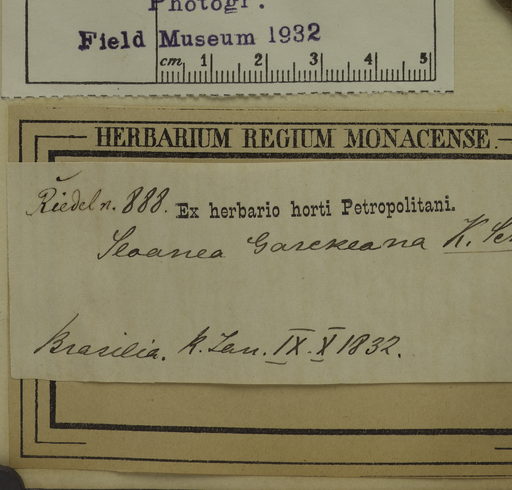 Photogr.
Field Museum 1932
cm 1 2 3 4 5
HERBARIUM REGIUM MONACENSE.
Riedel n. 888. Ex herbario horti Petropolitani.
Sloanea Garckeana K. Sch
Brasilia. R. Jan. IX. X 1832.